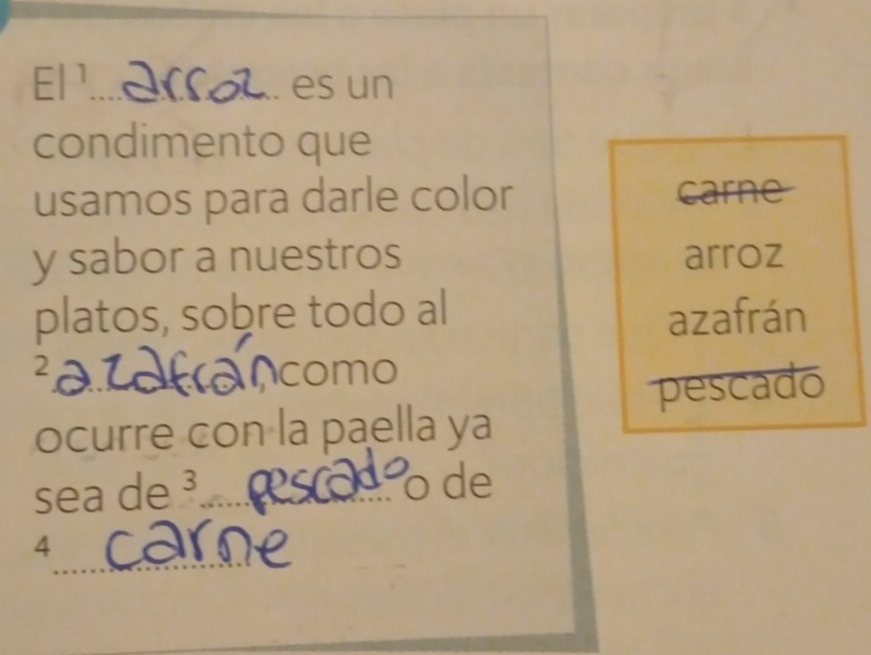 El ¹ arroz es un
condimento que
usamos para darle color
y sabor a nuestros
platos, sobre todo al
² azafrán, como
ocurre con la paella ya
sea de ³ pescado o de
4 carne
carne
arroz
azafrán
pescado